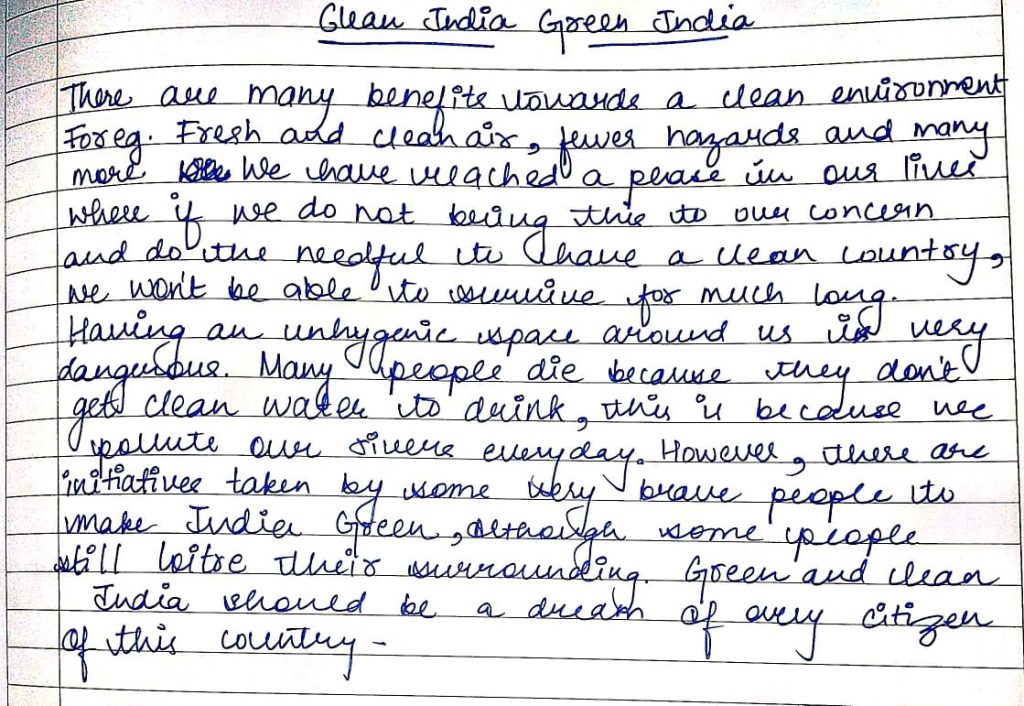 Clean India Green India
There are many benefits towards a clean environment
Foreg. Fresh and clean air, fewer hazards and many
more We have reached a phase in our lives
where if we do not bring this to our concern
and do the needful to have a clean country,
we won't be able to survive for much long.
Having an unhygenic space around us is very
dangerous. Many people die because they don't
get clean water to drink, this is because we
pollute our rivers everyday. However, there are
initiatives taken by some very brave people to
make India Green, although some people
still loitre their surrounding. Green and clean
India should be a dream of every citizen
of this country -